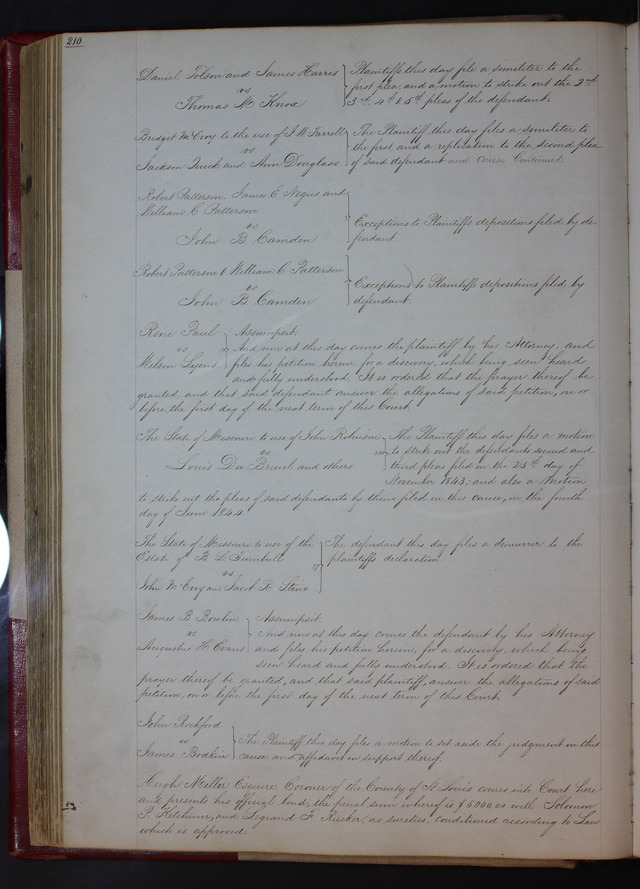 210
Daniel Tolson and James Harris
vs
Thomas M Knox
Plaintiffs this day file a similiter to the
first plea, and a motion to strike out the 2nd
3rd, 4th & 5th pleas of the defendant.
Bridget McEvoy to the use of J. W. Farrell
vs
Jackson and Ann Douglass
The Plaintiff this day files a similiter to
the first and a replication to the second plea
of said defendant and cause Continued
Robert Patterson, James C Negus and
William C Patterson
vs
John B. Camden
Exceptions to Plaintiffs depositions filed by de-
fendant
Robert Patterson & William C Patterson
vs
John B. Camden
Exceptions to Plaintiffs depositions filed by
defendant.
Rene Paul
vs
Wilson
Assumpsit
And now at this day comes the plaintiff by his Attorney, and
files his petition herein for a discovery, which being seen heard
and fully understood. It is ordered that the prayer thereof be
granted and that said defendant answer the allegations of said petition, on or
before the first day of the next term of this Court.
The State of Missouri to use of John Robinson
vs
Louis Du Breuil and others
The Plaintiff this day files a motion
to strike out the defendants second and
third pleas filed in the 25th day of
November 1843; and also a Motion
to strike out the pleas of said defendants by them filed in this cause, on the fourth
day of June 1844
The State of Missouri to use of the
Estate of H. L.
vs
John McEvoy and Jacob R Stine
The defendant this day files a demurrer to the
plaintiffs declaration
James B Bowlin
vs
Augustus H Evans
Assumpsit
And now at this day comes the defendant by his Attorney
and files his petition herein, for a discovery, which being
seen heard and fully understood. It is ordered that the
prayer thereof be granted, and that said plaintiff, answer the allegations of said
petition, on or before the first day of the next term of this Court.
John Rockford
vs
James Bodkin
The Plaintiff this day files a motion to set aside the judgment in this
cause and affidavit in support thereof.
Hugh Miller Esquire Coroner of the County of St Louis comes into Court here
and presents his official bond, the penal sum whereof is $5000.00 with Solomon
P. Ketchum, and Legrand F Rucker, as sureties, conditioned according to Law
which is approved